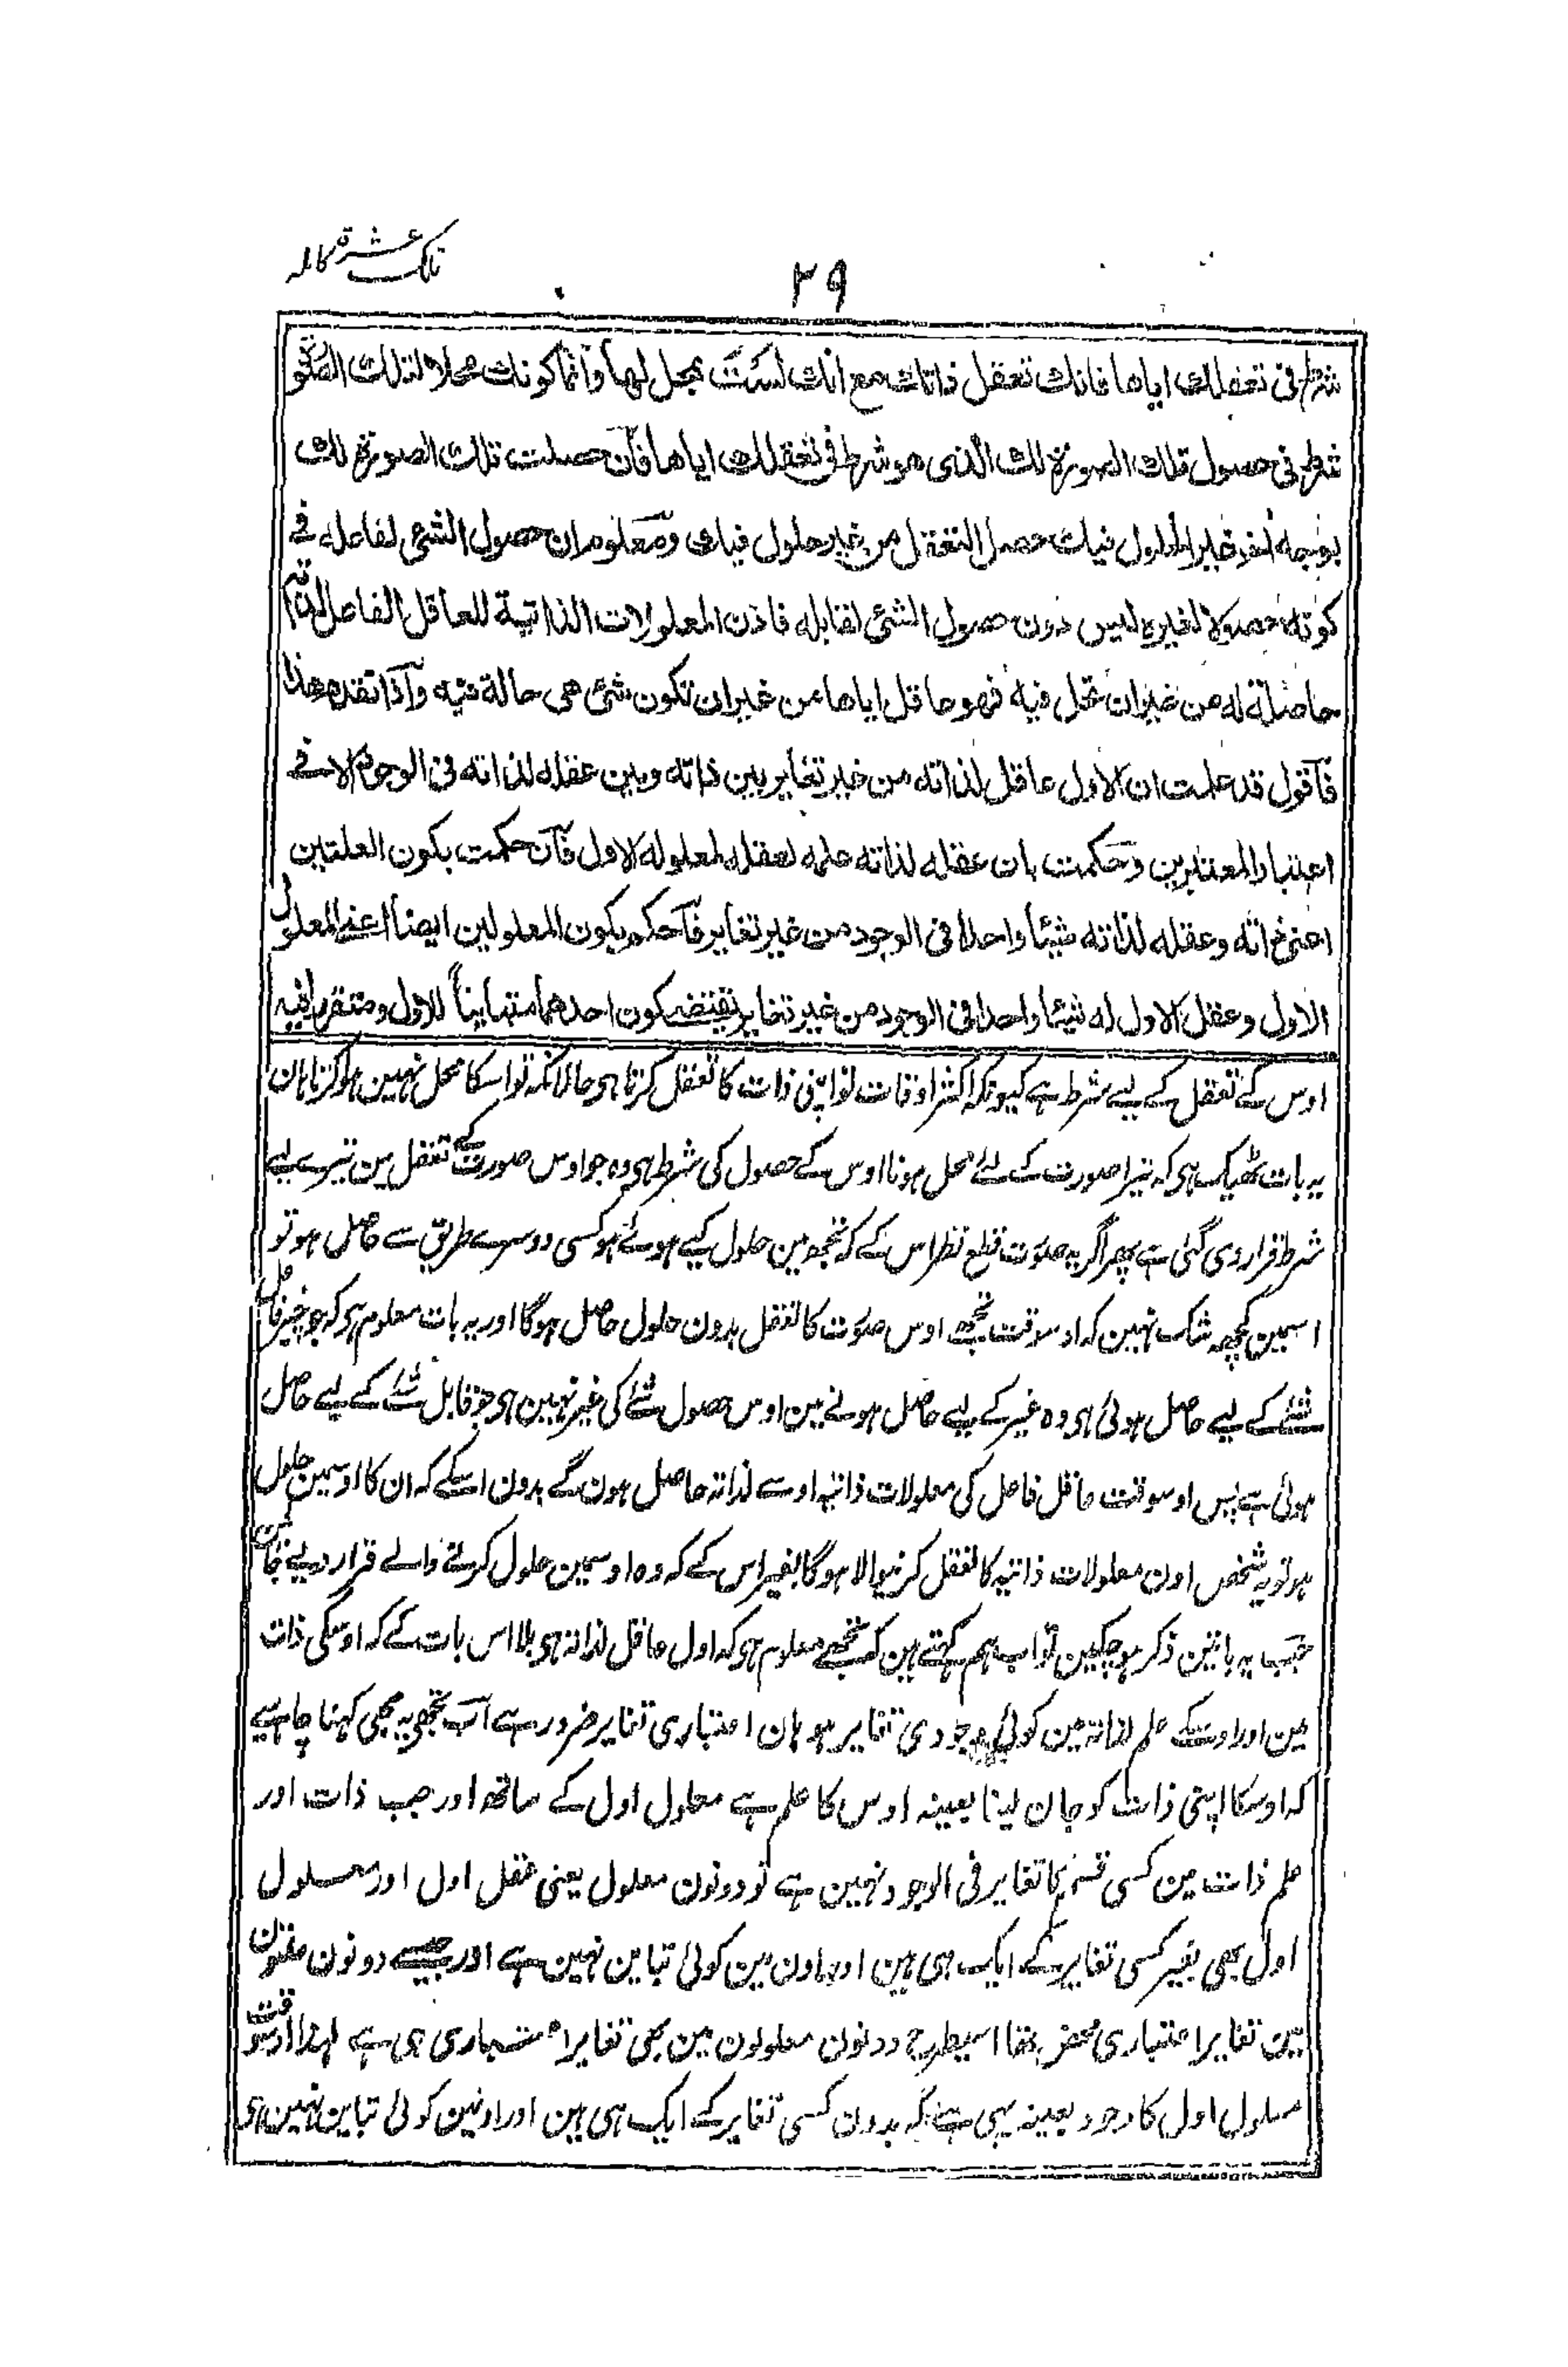 تلک عشرة کاملہ
۲۹
شرط فی تعقلك اياها فانك تعقل ذاتك مع انك لست بمحل لها وانما كونك محلا لتلك الصورة
شرط فی حصول تلك الصورة لك الذی هو شرط فی تعقلك اياها فان حصلت تلك الصورة لك
بوجه اخر غير الحلول فيك حصل التعقل من غير حلول فيك ومعلوم ان حصول الشئ لفاعله فی
كونه حصولا لغيره ليس دون حصول الشئ لقابله فاذن المعلولات الذاتية للعاقل الفاعل لذاته
حاصلة له من غير ان تحل فيه فهو عاقل اياها من غير ان تكون شئ هی حالة فيه واذا تقدم هذا
فاقول قد علمت ان الاول عاقل لذاته من غير تغاير بين ذاته وبين عقله لذاته فی الوجود الا فی
اعتبار المعتبرين وحكمت بان عقله لذاته علة لعقله لمعلوله الاول فان حكمت بكون العلتين
اعنی ذاته وعقله لذاته شيئا واحدا فی الوجود من غير تغاير فاحكم بكون المعلولين ايضا اعنی المعلول
الاول وعقل الاول له شيئا واحدا فی الوجود من غير تغاير يقتضی كون احدهما متباينا للاول ومتقررا فيه
اوس کے تعقل کے لیے شرط ہے کیونکہ اکثر اوقات تو اپنی ذات کا تعقل کرتا ہی حالانکہ تو اسکا محل نہین ہوا کرتا ہان
یہ بات ٹھیک ہی کہ تیرا صورت کے لئے محل ہونا اوس کے حصول کی شرط ہی وہ جو اوس صورت کے تعقل مین تیرے لیے
شرط قرار دی گئی ہے پھر اگر یہ صورت قطع نظر اس کے کہ تجھ مین حلول کیے ہوئے ہو کسی دوسرے طریق سے حاصل ہو تو
اسمین کچھ شک نہین کہ اوسوقت تجھے اوس صورت کا تعقل بدون حلول حاصل ہوگا اور یہ بات معلوم ہی کہ جو چیز فاعل
شئے کے لیے حاصل ہوئی ہی وہ غیر کے لیے حاصل ہونے مین اوس حصول شئے کی غیر نہین ہی جو قابل شئے کے لیے حاصل
ہوئی ہے پس اوسوقت عاقل فاعل کی معلولات ذاتیہ اوسے لذاتہ حاصل ہون گے بدون اسکے کہ ان کا اوسمین حلول
ہو تو یہ شخص اون معلولات ذاتیہ کا تعقل کرنیوالا ہوگا بغیر اس کے کہ وہ اوسمین حلول کرنے والے قرار دیے جائین
جب یہ باتین ذکر ہو چکین تو اب ہم کہتے ہین کہ تجھے معلوم ہی کہ اول عاقل لذاتہ ہی بلا اس بات کے کہ اوسکی ذات
مین اور اوسکے علم لذاتہ مین کوئی وجودی تغایر ہو ہان اعتباری تغایر ضرور ہے اب تجھے یہ بھی کہنا چاہیے
کہ اوسکا اپنی ذات کو جان لینا بعینہ اوس کا علم ہے معلول اول کے ساتھ اور جب ذات اور
علم ذات مین کسی قسم کا تغایر فی الوجود نہین ہے تو دونون معلول یعنی عقل اول اور معلول
اول بھی بغیر کسی تغایر کے ایک ہی ہین اور اون مین کوئی تباین نہین ہے اور جیسے دونون علتون
مین تغایر اعتباری محض تھا اسیطرح دونون معلولون مین بھی تغایر اعتباری ہی ہے لہذا اوسوقت
معلول اول کا وجود بعینہ یہی ہے کہ بدون کسی تغایر کے ایک ہی ہین اور اونمین کوئی تباین نہین ہی